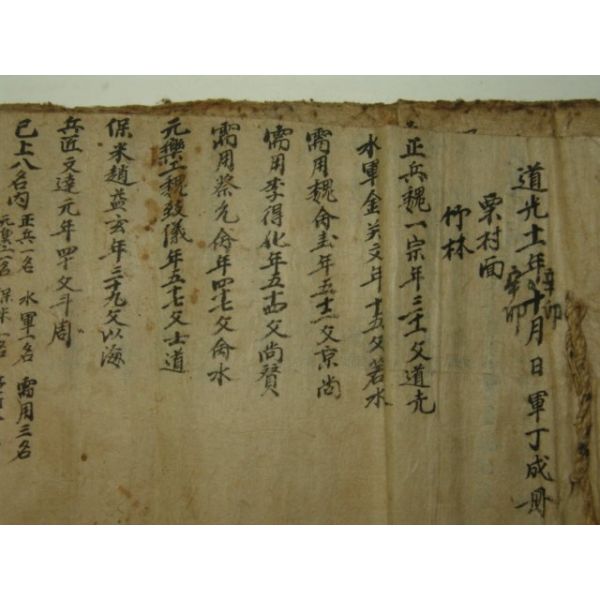 道光十一年辛卯十月 日軍丁成冊
辛卯
栗村面
竹林
正兵魏一宗年三十一父道光
水軍金关文年十五父若水
需用魏尙圭年五十一父京尙
需用李得化年五十四父尚賢
需用蔡允尙年四七父尙水
元樂工魏致儀年五七父士道
保米趙益玄年三十九父以海
兵匠文達元年四十父斗周
已上八名內 正兵一名 水軍一名 需用三名
元樂工一名 保米一名